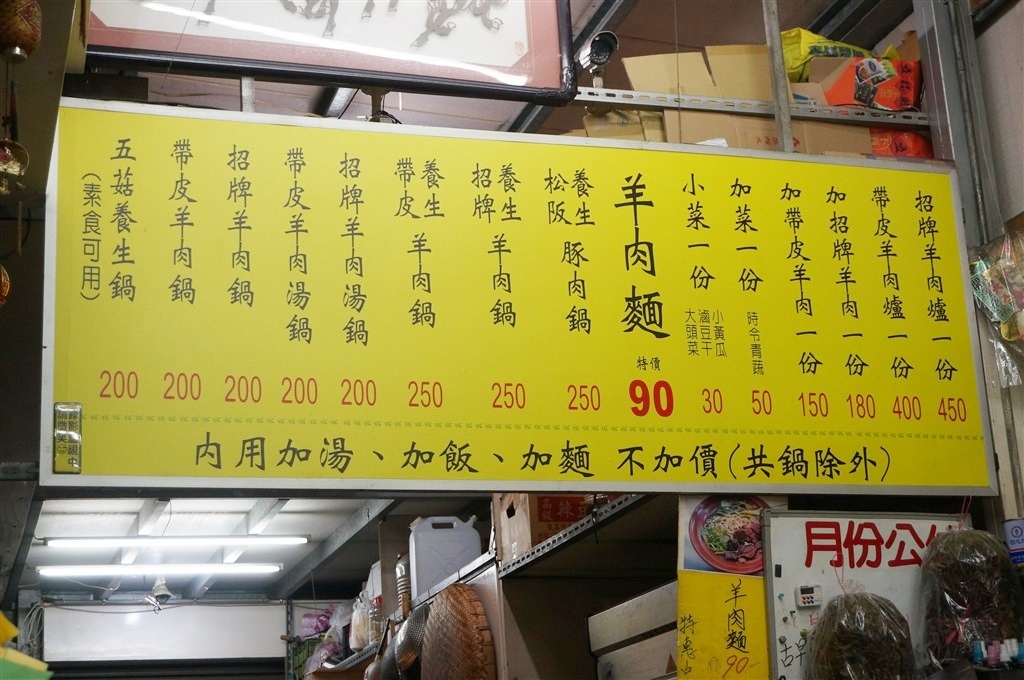 招牌羊肉爐一份 450
帶皮羊肉爐一份 400
加招牌羊肉一份 180
加帶皮羊肉一份 150
加菜一份 時令青蔬 50
小菜一份 小黃瓜 滷豆干 大頭菜 30
羊肉麵 特價 90
養生松阪豚肉鍋 250
養生招牌羊肉鍋 250
養生帶皮羊肉鍋 250
招牌羊肉湯鍋 200
帶皮羊肉湯鍋 200
招牌羊肉鍋 200
帶皮羊肉鍋 200
五菇養生鍋 (素食可用) 200
內用加湯、加飯、加麵 不加價(共鍋除外)
月份公
羊肉麵
90
特惠
古早